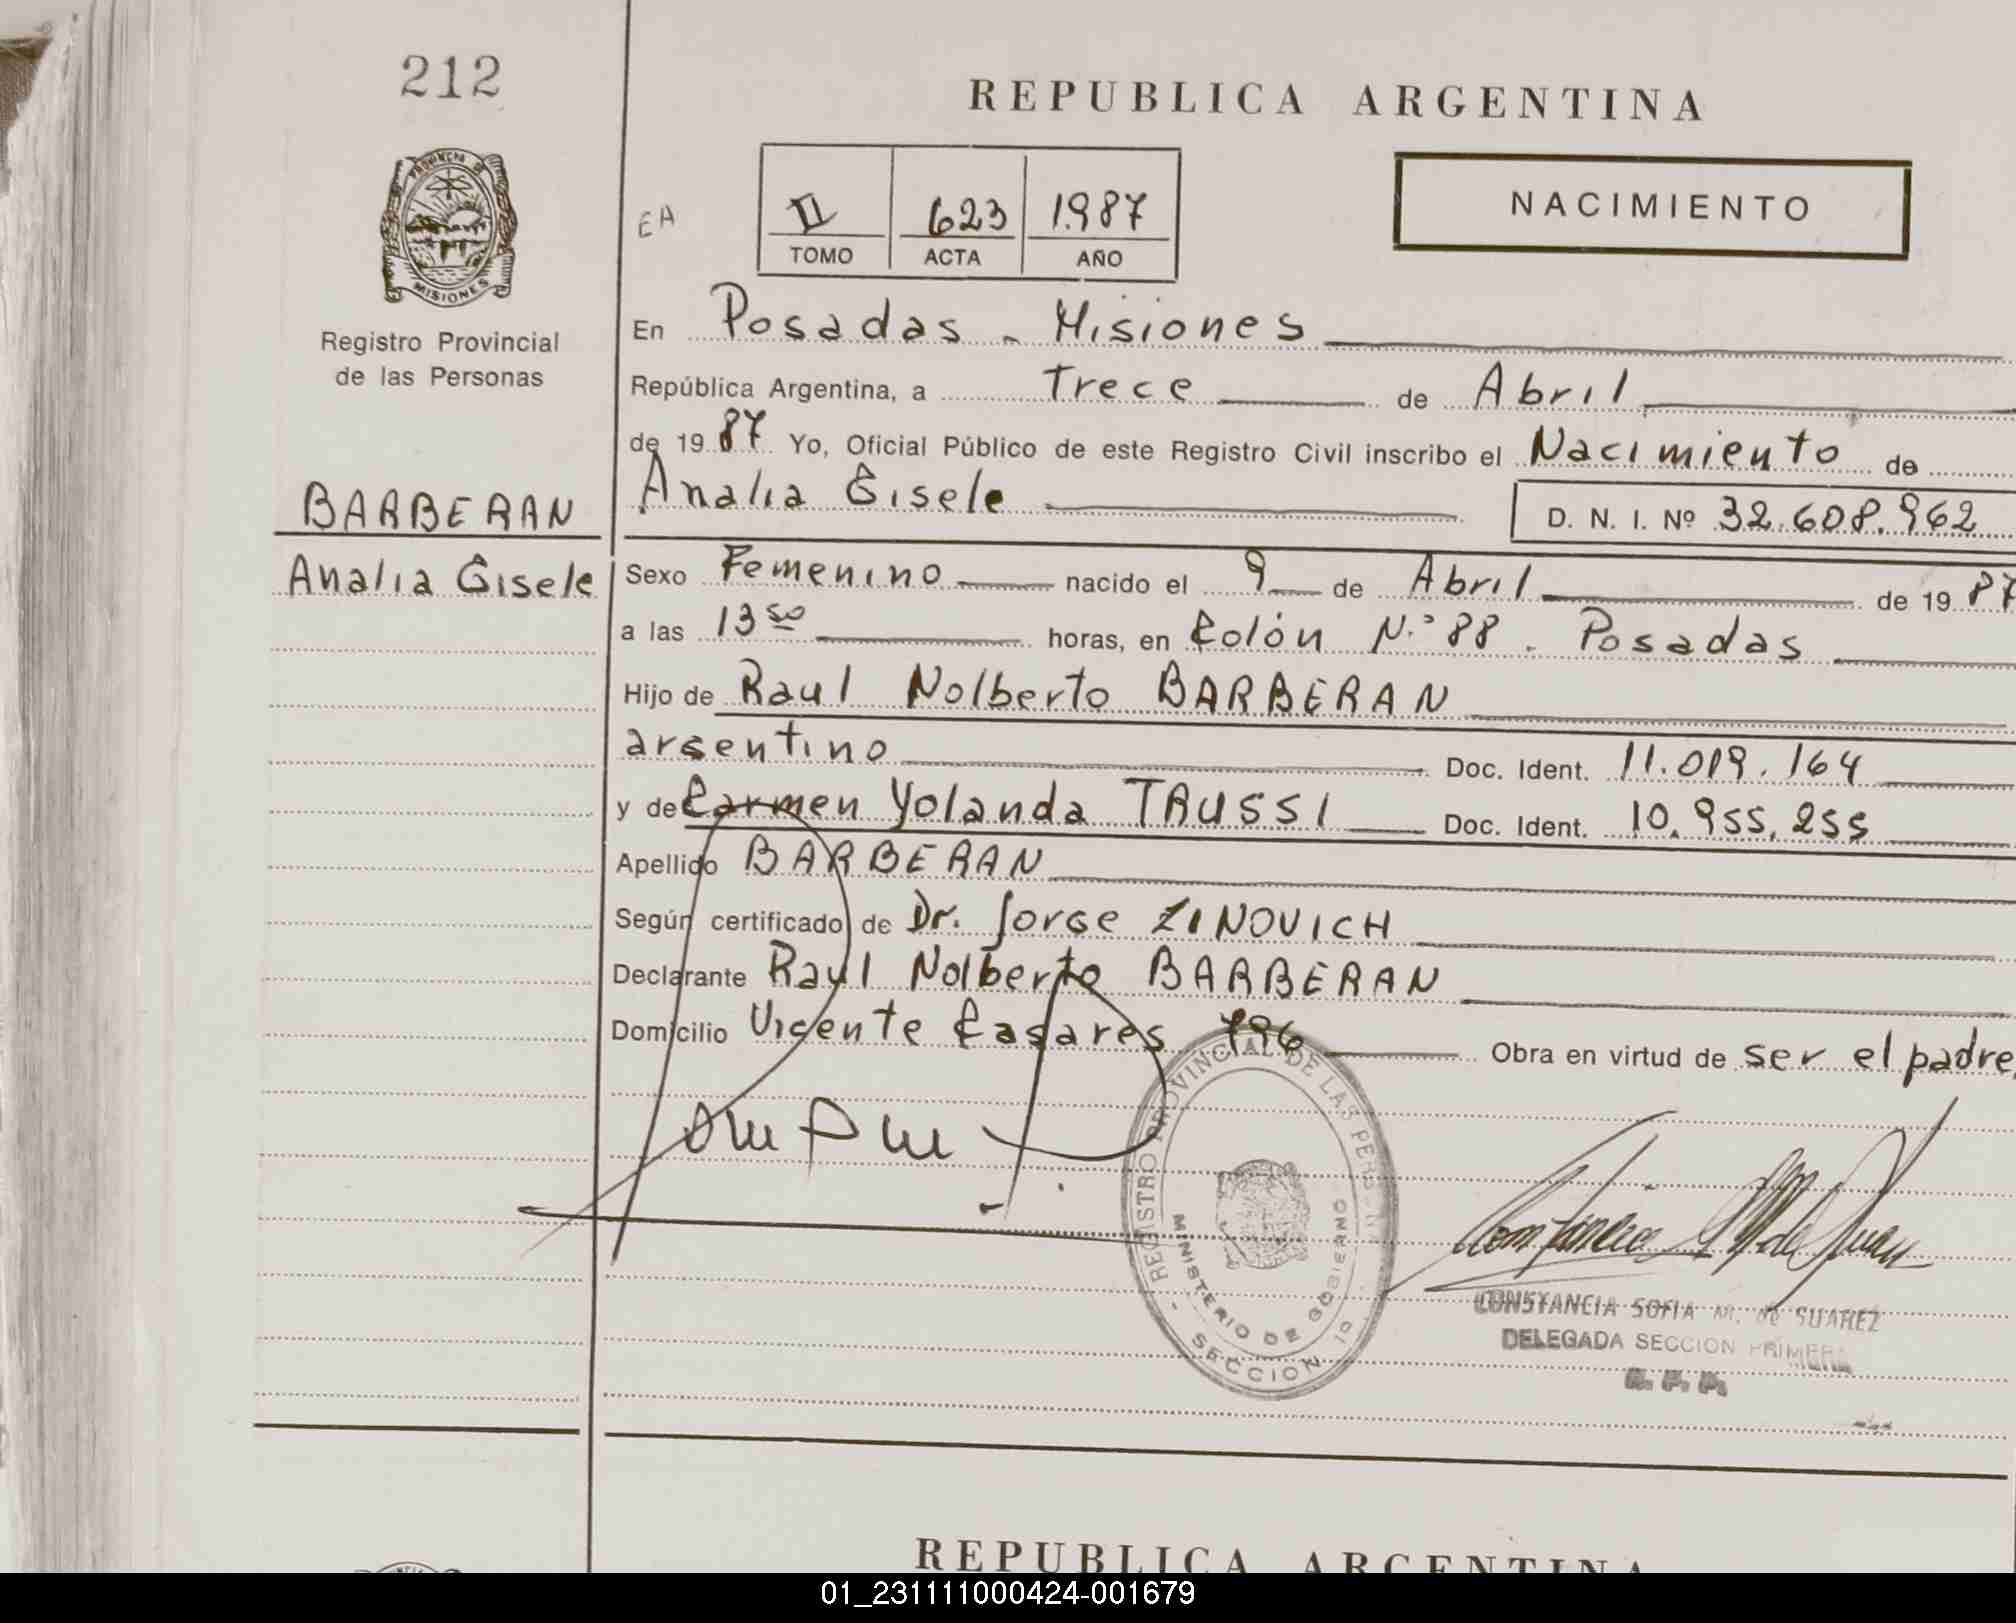 212
REPUBLICA ARGENTINA
PROVINCIA DE
MISIONES
Registro Provincial
de las Personas
EA
II 623 1.987
TOMO ACTA AÑO
NACIMIENTO
En Posadas - Misiones
República Argentina, a Trece de Abril
de 19 87 Yo, Oficial Público de este Registro Civil inscribo el Nacimiento de
Analia Gisele
D. N. I. Nº 32.608.962
BARBERAN
Analia Gisele
Sexo Femenino nacido el 9 de Abril de 19 87
a las 13 50 horas, en Colón N.º 88 . Posadas
Hijo de Raul Nolberto BARBERAN
argentino Doc. Ident. 11.019.164
y de Carmen Yolanda TRUSSI Doc. Ident. 10.955.255
Apellido BARBERAN
Según certificado de Dr. Jorge ZINOVICH
Declarante Raul Nolberto BARBERAN
Domicilio Vicente Casares 796 Obra en virtud de ser el padre.
REGISTRO PROVINCIAL DE LAS PERS
MINISTERIO DE GOBIERNO
- SECCION 1º -
CONSTANCIA SOFIA M. de SUAREZ
DELEGADA SECCION PRIMERA
R. P. P.
REPUBLICA ARGENTINA
01_231111000424-001679